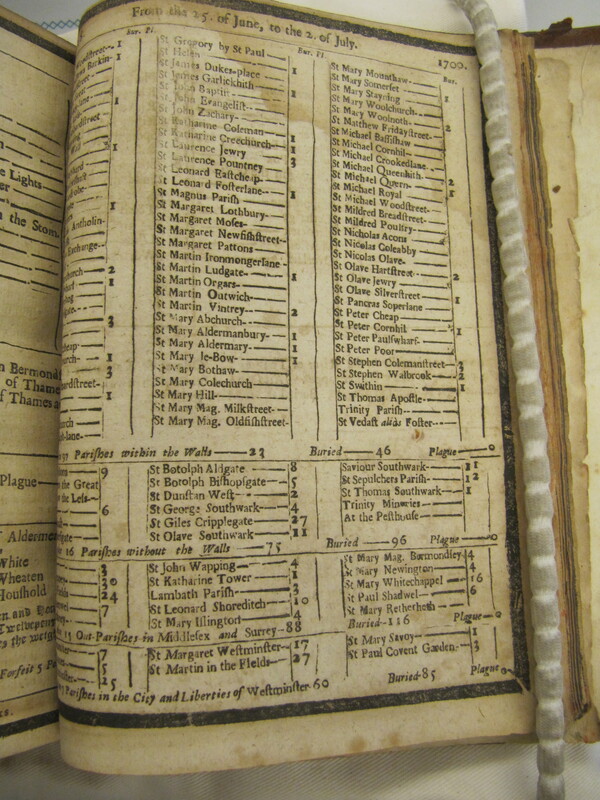 From the 25. of June, to the 2. of July.
1700.
Bur. Pl.
Bur. Pl.
Bur.
St Gregory by St Paul
St Helen
St James Dukes-place 1
St James Garlickhith
St John Baptist 2
St John Evangelist
St John Zachary
St Katharine Coleman
St Katharine Creechurch 1
St Laurence Jewry 1
St Laurence Pountney 3
St Leonard Eastcheap
St Leonard Fosterlane
St Magnus Parish 1
St Margaret Lothbury
St Margaret Moses
St Margaret Newfishstreet
St Margaret Pattons
St Martin Ironmongerlane
St Martin Ludgate
St Martin Orgars 1
St Martin Outwich
St Martin Vintrey
St Mary Abchurch 2
St Mary Aldermanbury
St Mary Aldermary 1
St Mary le-Bow 1
St Mary Bothaw
St Mary Colechurch
St Mary Hill
St Mary Mag. Milkstreet
St Mary Mag. Oldfishstreet
St Mary Mounthaw
St Mary Somerset
St Mary Stayning 1
St Mary Woolchurch
St Mary Woolnoth
St Matthew Fridaystreet 2
St Michael Bassishaw
St Michael Cornhil
St Michael Crookedlane
St Michael Queenhith
St Michael Quern 2
St Michael Royal 1
St Michael Woodstreet
St Mildred Breadstreet
St Mildred Poultry
St Nicholas Acons
St Nicolas Coleabby
St Nicolas Olave
St Olave Hartstreet
St Olave Jewry 2
St Olave Silverstreet
St Pancras Soperlane 1
St Peter Cheap
St Peter Cornhil
St Peter Paulswharf 1
St Peter Poor
St Stephen Colemanstreet
St Stephen Walbrook 2
St Swithin 1
St Thomas Apostle
Trinity Parish
St Vedast alids Foster
97 Parishes within the Walls 23 Buried 46 Plague 0
St Botolph Aldgate 8
St Botolph Bishopsgate 5
St Dunstan West 2
St George Southwark 4
St Giles Cripplegate 27
St Olave Southwark 11
Saviour Southwark 11
St Sepulchers Parish 12
St Thomas Southwark 1
Trinity Minories
At the Pesthouse
16 Parishes without the Walls 75 Buried 96 Plague 0
St John Wapping 4
St Katharine Tower 1
Lambath Parish 3
St Leonard Shoreditch 10
St Mary Islington 4
St Mary Mag. Bermondsey 14
St Mary Newington 4
St Mary Whitechappel 16
St Paul Shadwel 6
St Mary Retherheth
15 Out-Parishes in Middlesex and Surrey 88 Buried 116 Plague 0
St Margaret Westminster 17
St Martin in the Fields 27
St Mary Savoy 1
St Paul Covent Garden 3
Parishes in the City and Liberties of Westminster 60 Buried 85 Plague 0